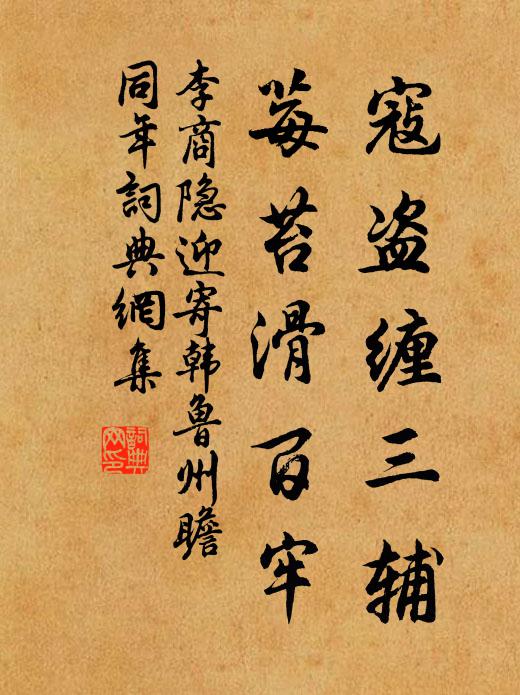 寇盗缠三辅
莓苔滑百牢
李商隐迎寄韩鲁州瞻
同年詞典網集
詞典網印